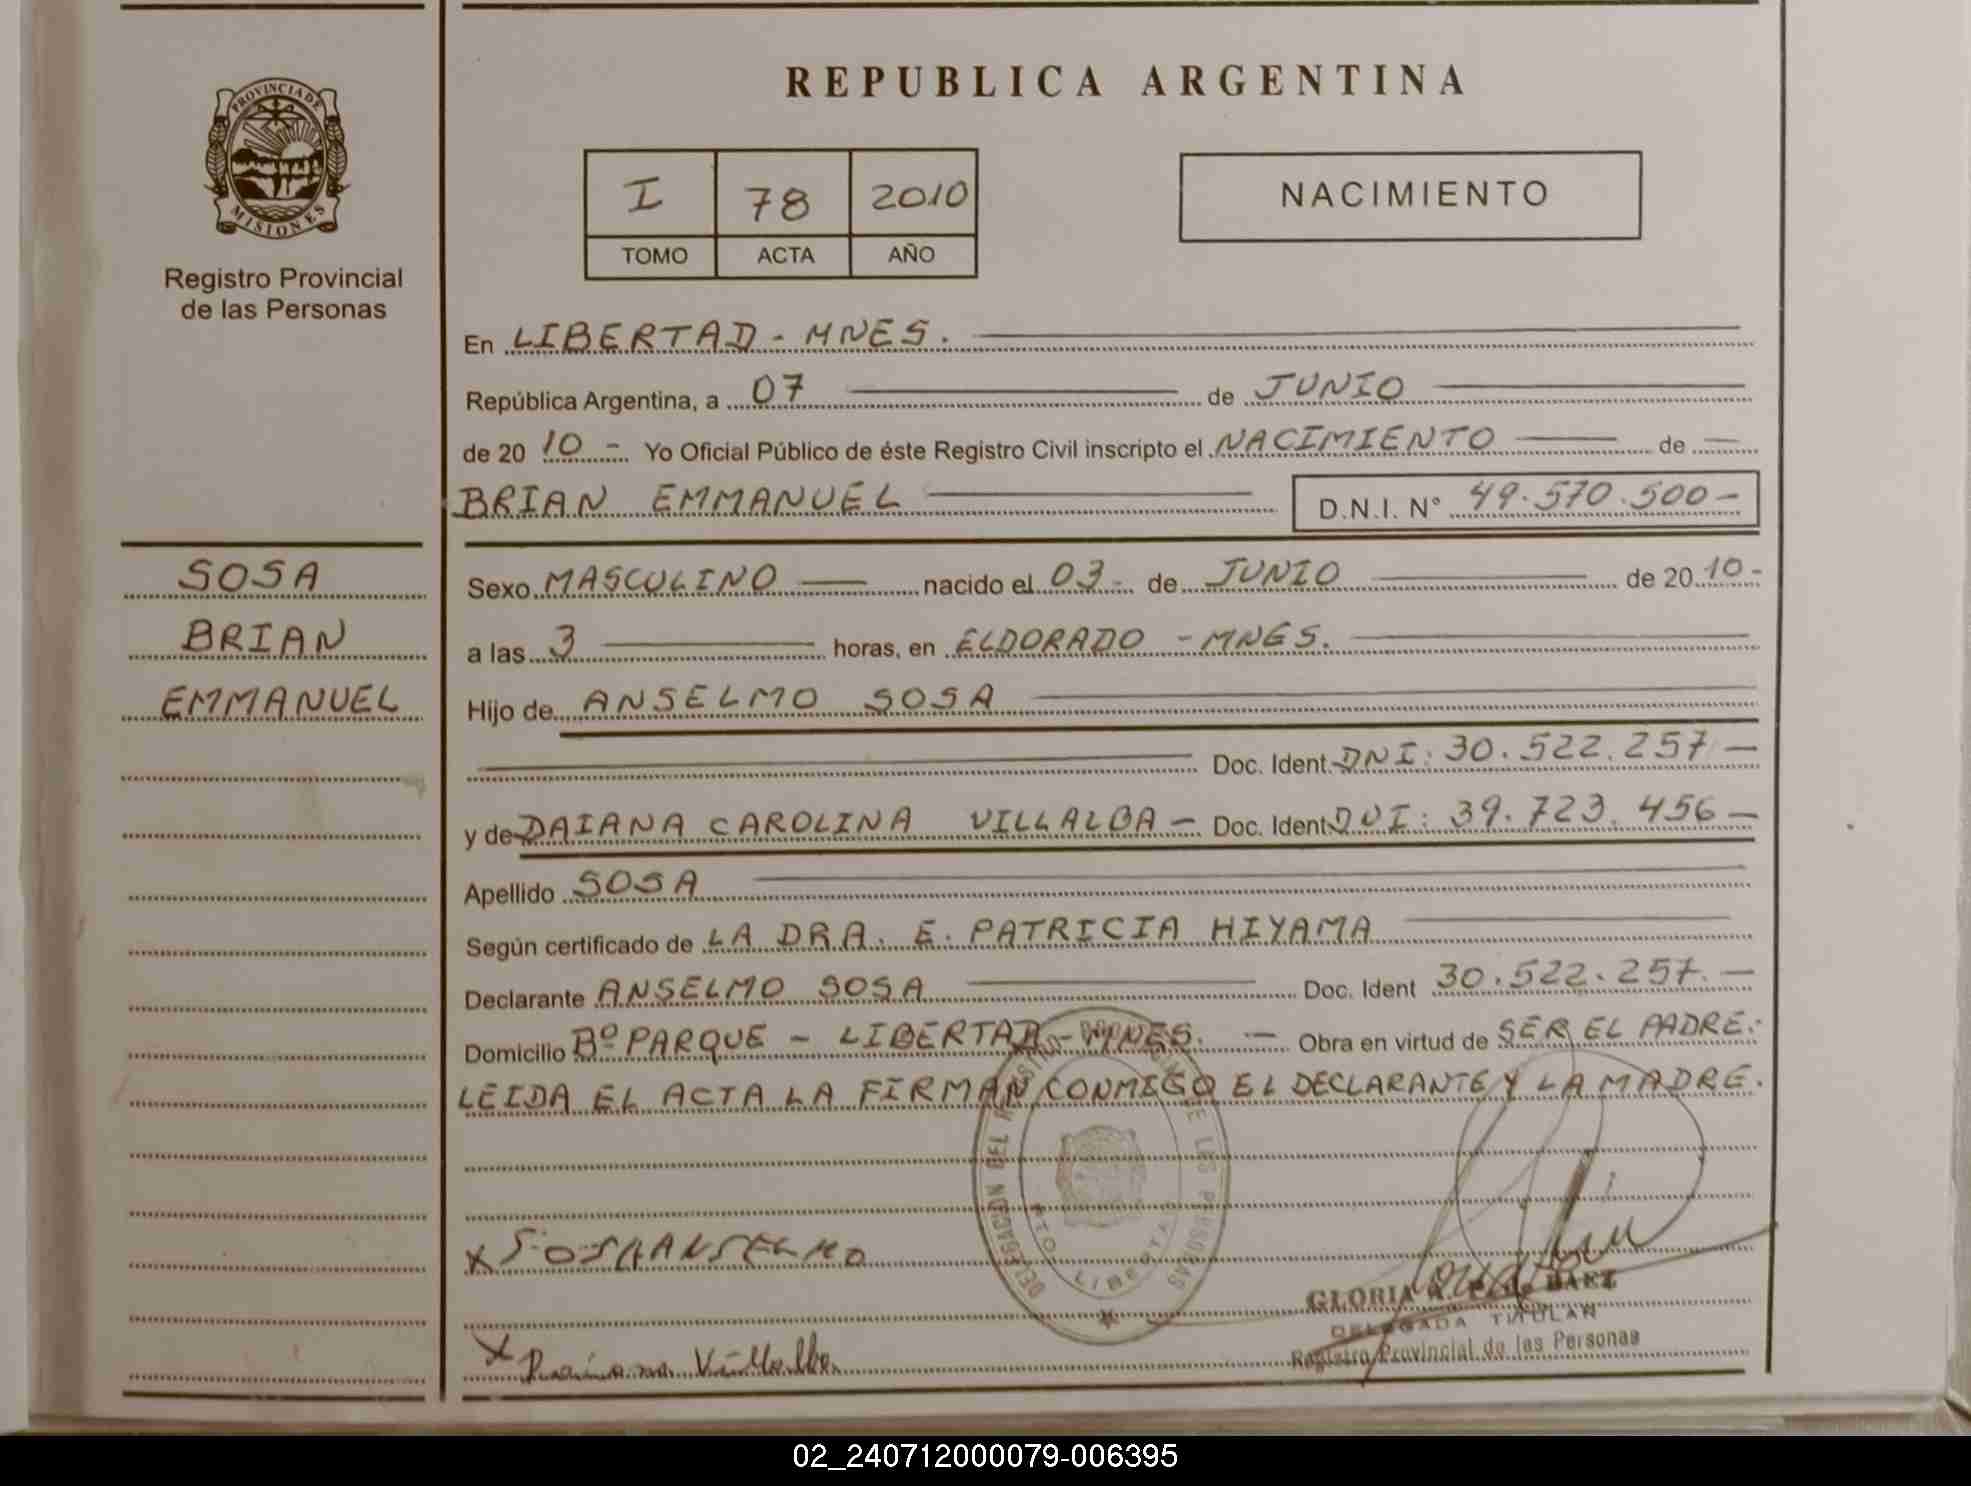 REPUBLICA ARGENTINA
PROVINCIA DE
MISIONES
Registro Provincial
de las Personas
I 78 2010
TOMO ACTA AÑO
NACIMIENTO
En LIBERTAD - MNES.
República Argentina, a 07 de JUNIO
de 20 10 - Yo Oficial Público de éste Registro Civil inscripto el NACIMIENTO de
BRIAN EMMANUEL D.N.I. N° 49.570.500 -
SOSA
BRIAN
EMMANUEL
Sexo MASCULINO nacido el 03 - de JUNIO de 20 10 -
a las 3 horas, en ELDORADO - MNES.
Hijo de ANSELMO SOSA
Doc. Ident. DNI: 30.522.257 -
y de DAIANA CAROLINA VILLALBA - Doc. Ident DNI: 39.723.456 -
Apellido SOSA
Según certificado de LA DRA. E. PATRICIA HIYAMA
Declarante ANSELMO SOSA Doc. Ident 30.522.257. -
Domicilio Bº PARQUE - LIBERTAD - MNES. - Obra en virtud de SER EL PADRE.
LEIDA EL ACTA LA FIRMAN CONMIGO EL DECLARANTE Y LA MADRE.
DELEGACION DEL LAS PERSONAS
PTO LIBERTA
x SOSA ANSELMO
x Daiana Villalba
GLORIA BAEZ
DELEGADA TITULAR
Registro Provincial de las Personas
02_240712000079-006395